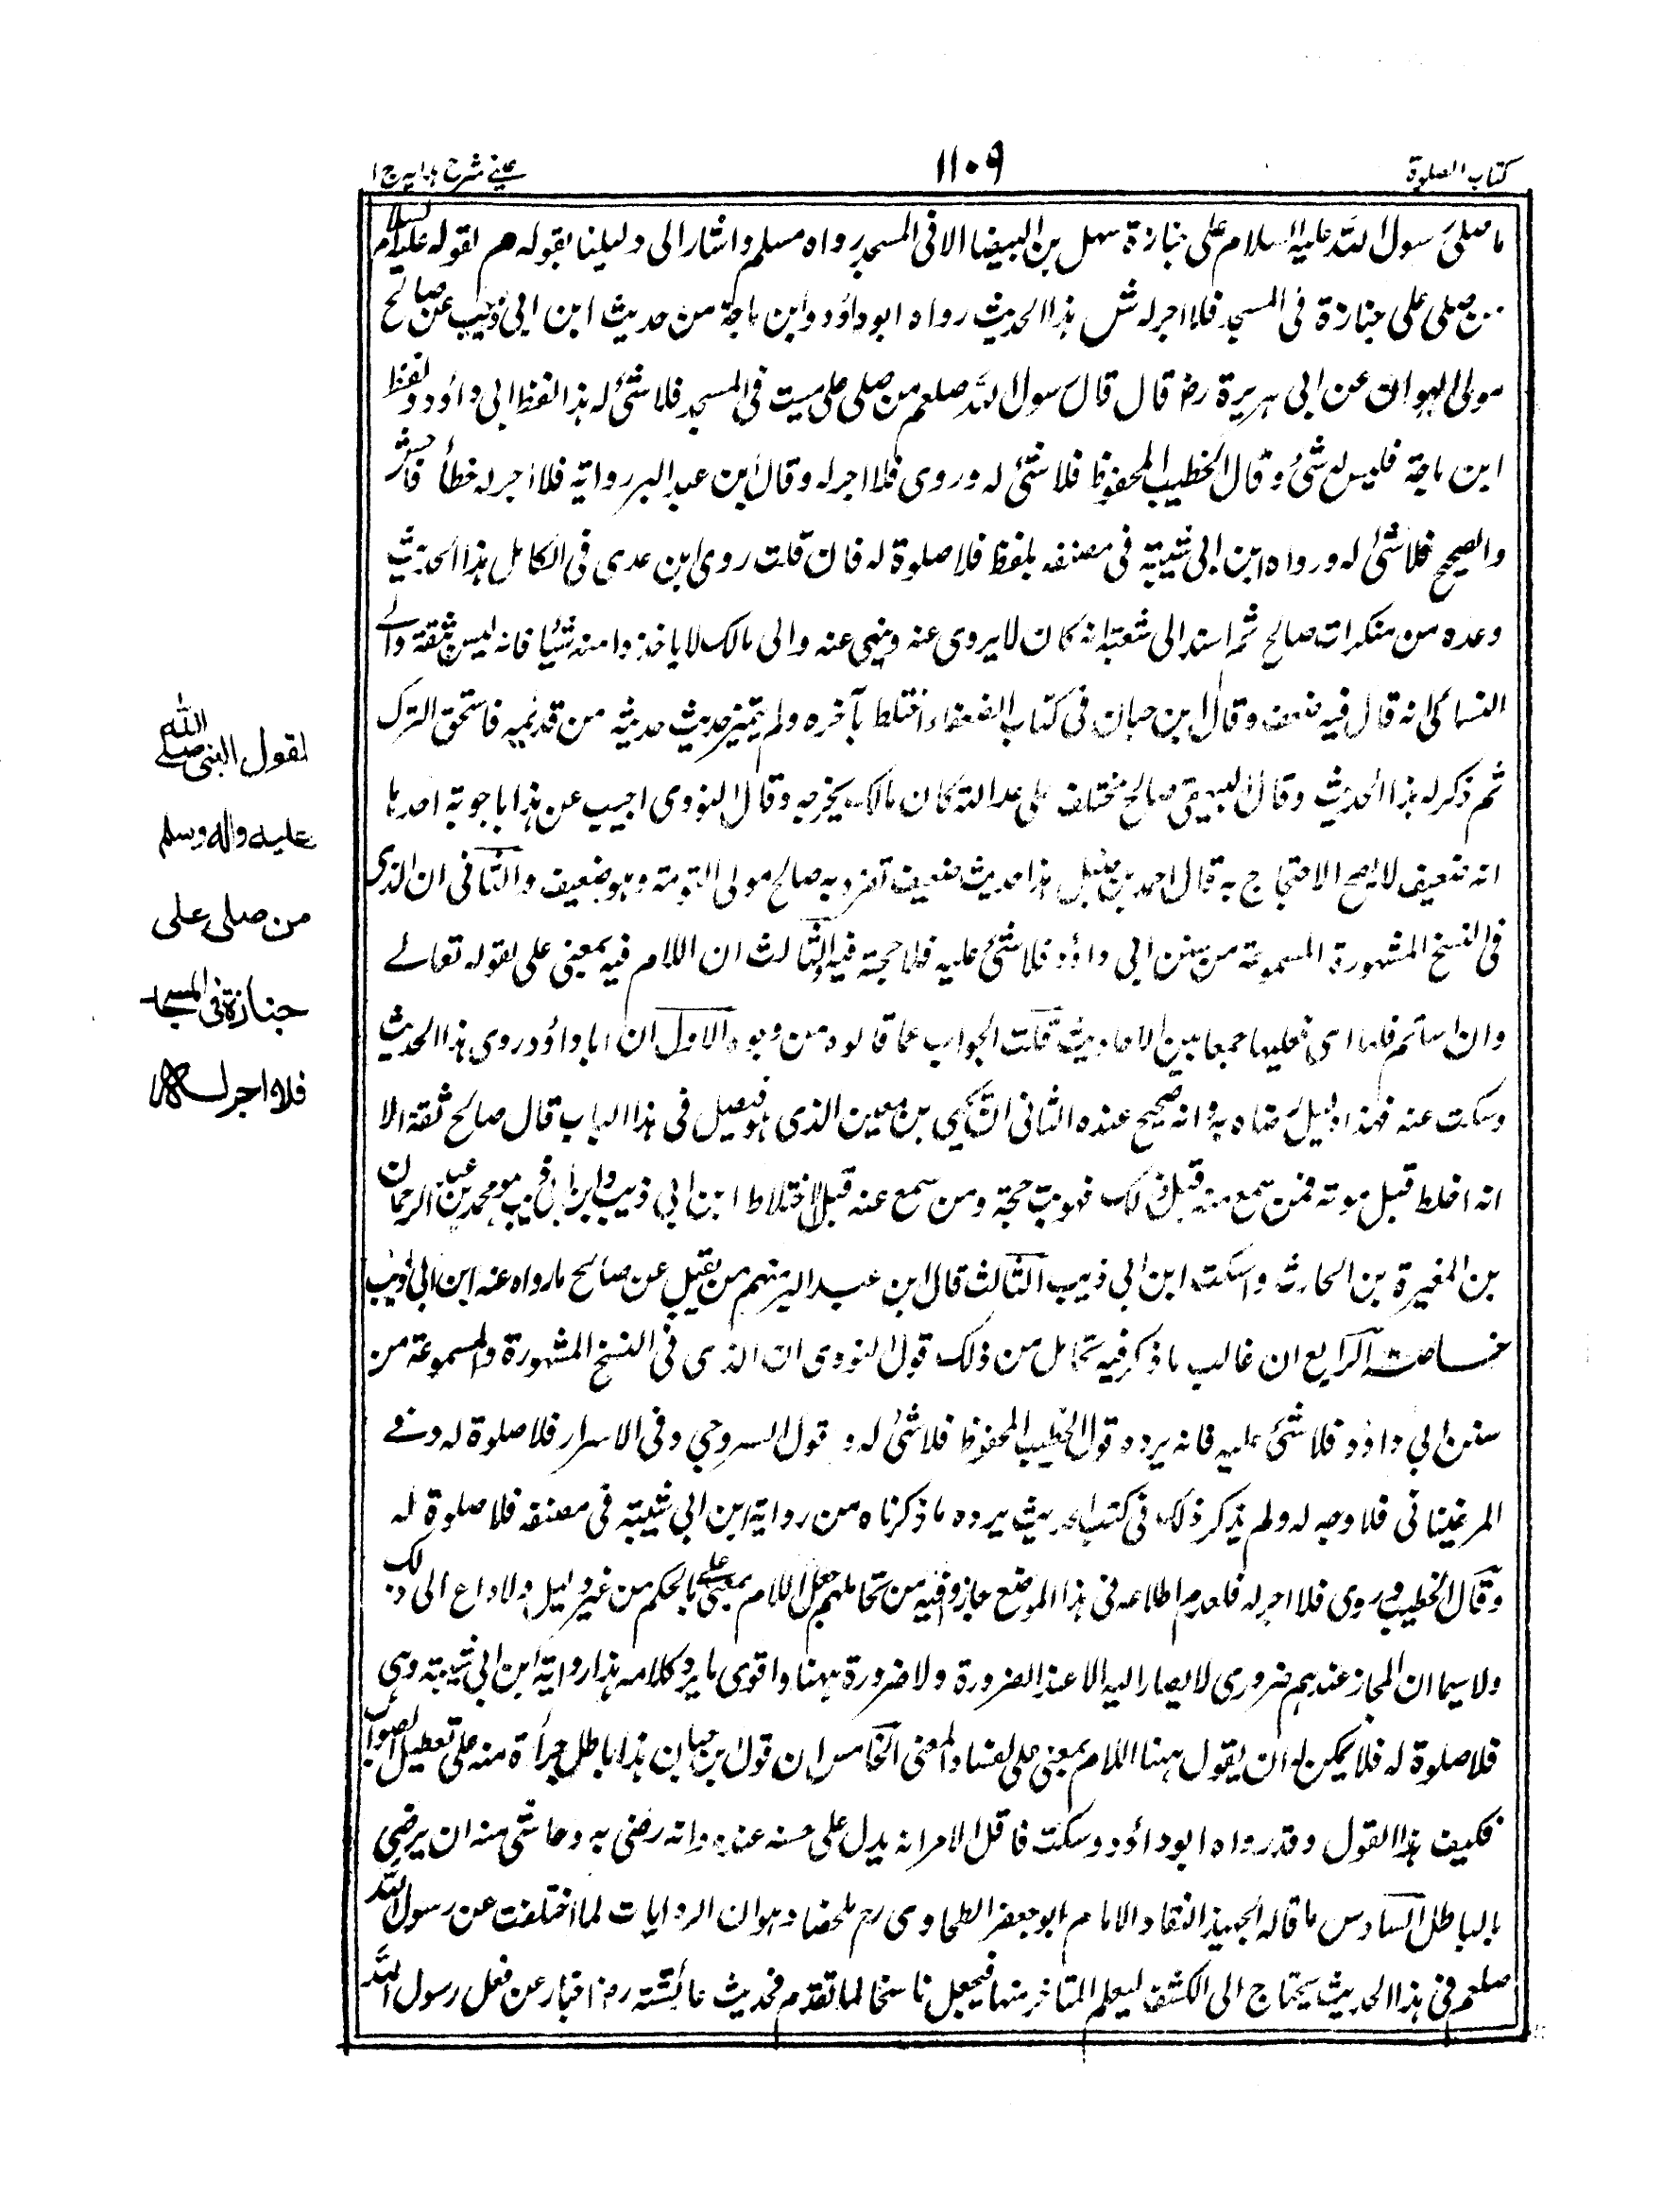 كتاب الصلوة
١١٠٩
عينے شرح ہدایہ ج ا
ما صلى رسول الله عليه السلام على جنازة سهل بن البيضا الا فى المسجد رواه مسلم واشار الى دليلنا بقوله هم لقوله عليه السلام
من صلى على جنازة فى المسجد فلا اجر له ش هذا الحديث رواه ابو داؤد وابن ماجة من حديث ابن ابى ذئيب عن صالح
مولى عن ابى هريرة رض قال قال رسول الله صلعم من صلى على ميت فى المسجد فلا شئ له هذا لفظ ابى داؤد ولفظ
ابن ماجة فليس له شئ وقال الخطيب المحفوظ فلا شئ له وروى فلا اجر له وقال ابن عبد البر رواية فلا اجر له خطأ فاحش
والصحيح فلا شئ له ورواه ابن ابى شيبة فى مصنفه بلفظ فلا صلوة له فان قلت روى ابن عدى فى الكامل هذا الحديث
وعده من منكرات صالح ثم اسند الى شعبة انه كان لا يروى عنه وينهى عنه والى مالك لا ياخذوا منه شيئا فانه ليس بثقة والے
النسائى انه قال فيه ضعف وقال ابن حبان فى كتاب الضعفاء اختلط بآخره ولم يتميز حديث حديثه من قديمه فاستحق الترك
ثم ذكر له هذا الحديث وقال البيهقى صالح مختلف على عدالته كان مالك يخرجه وقال النووى اجيب عن هذا باجوبة احدها
انه ضعيف لا يصح الاحتجاج به قال احمد بن حنبل هذا حديث ضعيف تفرد به صالح مولى التومة وهو ضعيف والثانى ان الذى
فى النسخ المشهورة المسموعة من سنن ابى داؤد فلا شئ عليه فلا حجة فيه والثالث ان اللام فيه بمعنى على لقوله تعالے
وان اسأتم فلها اى فعليها جمعا بين الاحاديث قلت الجواب عما قالوه من وجوه الاول ان ابا داؤد روى هذا الحديث
وسكت عنه فهذا دليل رضاه به وانه صحيح عنده الثانى ان يحيى بن معين الذى هو فيصل فى هذا الباب قال صالح ثقة الا
انه اختلط قبل موته فمن سمع منه قبل ذلك فهو ثبت حجة ومن سمع عنه قبل الاختلاط ابن ابى ذيب وابن ابى ذيب هو محمد بن عبد الرحمان
بن المغيرة بن الحارث واسكت ابن ابى ذيب الثالث قال ابن عبد البر منهم من يقبل عن صالح ما رواه عنه ابن ابى ذيب
خاصة الرابع ان غالب ما ذكر فيه تحامل من ذلك قول النووى ان الذى فى النسخ المشهورة والمسموعة من
سنن ابى داؤد فلا شئ عليه فانه يرده قول الخطيب المحفوظ فلا شئ له و قول السروجى وفى الاسرار فلا صلوة له وفے
المرغينانى فلا وجه له ولم يذكر ذلك فى كتب الحديث يرده ما ذكرناه من رواية ابن ابى شيبة فى مصنفه فلا صلوة له
وقال الخطيب وروى فلا اجر له فلعدم اطلاعه فى هذا الموضع جازوا فيه من تحاملهم جعل اللام بمعنى على بالحكم من غير دليل ولا داع الى ذلك
ولا سيما ان المجاز عندهم ضرورى لا يصار اليه الا عند الضرورة ولا ضرورة ههنا واقوى ما يرد كلامه هذا رواية ابن ابى شيبة وهى
فلا صلوة له فلا يمكن له ان يقول ههنا اللام بمعنى على لفساد المعنى الخامس ان قول ابن حبان هذا باطل جرأة منه على تعطيل الصواب
فكيف هذا القول وقد رواه ابو داؤد وسكت فاقل الامر انه يدل على حسنه عنده وانه رضى به وحاشى منه ان يرضى
بالباطل السادس ما قاله الجهبذ النقاد الامام ابو جعفر الطحاوى رح ملخصا وهو ان الروايات لما اختلفت عن رسول الله
صلعم فى هذا الحديث يحتاج الى الكشف ليعلم المتاخر منها فيجعل ناسخا لما تقدم فحديث عائشة رض اخبار عن فعل رسول الله
لقول النبى صلى الله
عليه واله وسلم
من صلى على
جنازة فى المسجد
فلا اجر له